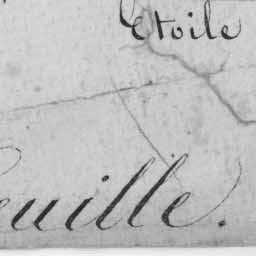 Etoile
euille.